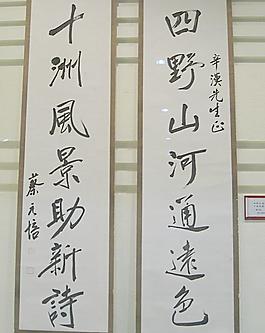 四野山河通遠色
辛漢先生正
十洲風景助新詩
蔡元培